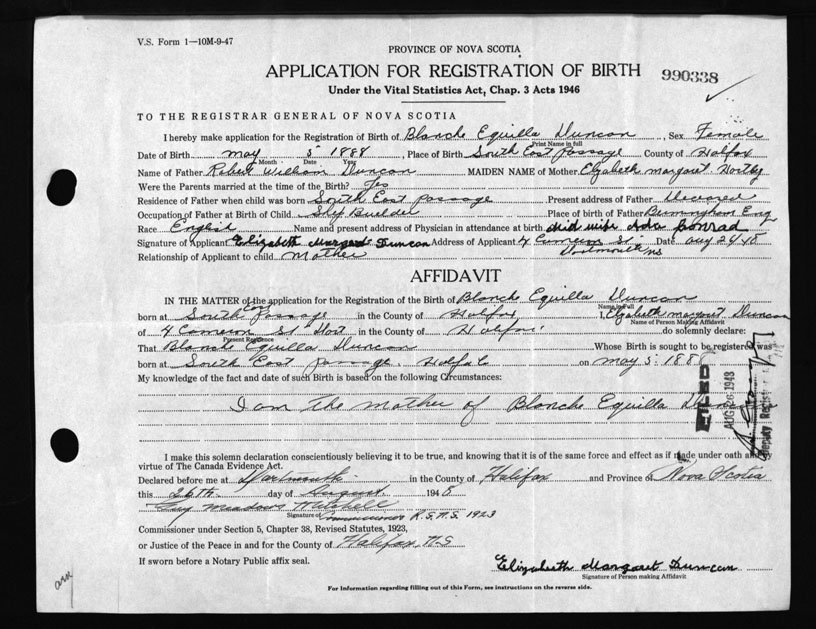 V.S. Form 1—10M-9-47
PROVINCE OF NOVA SCOTIA
APPLICATION FOR REGISTRATION OF BIRTH
990338
Under the Vital Statistics Act, Chap. 3 Acts 1946
TO THE REGISTRAR GENERAL OF NOVA SCOTIA
I hereby make application for the Registration of Birth of Blanche Equilla Duncan, Sex Female
Print Name in full
Date of Birth May 5 1888, Place of Birth South East Passage County of Halifax
Month Date Year
Name of Father Robert William Duncan MAIDEN NAME of Mother Elizabeth Margaret
Were the Parents married at the time of the Birth? Yes
Residence of Father when child was born South East Passage Present address of Father Deceased
Occupation of Father at Birth of Child Ship Builder Place of birth of Father Birmingham Eng
Race English Name and present address of Physician in attendance at birth Mid wife Ada Conrad
Signature of Applicant Elizabeth Margaret Duncan Address of Applicant 4 Cameron St Date Aug 26 48
Relationship of Applicant to child Mother Dartmouth NS
AFFIDAVIT
IN THE MATTER of the application for the Registration of the Birth of Blanche Equilla Duncan
Name in Full
born at South East Passage in the County of Halifax I, Elizabeth Margaret Duncan
Name of Person Making Affidavit
of 4 Cameron St Dart in the County of Halifax do solemnly declare:
Present Residence
That Blanche Equilla Duncan Whose Birth is sought to be registered was
born at South East Passage. Halifax Co on May 5. 1888
My knowledge of the fact and date of such Birth is based on the following Circumstances:
I am the mother of Blanche Equilla Duncan
FILED
AUG 26 1948
Deputy Registrar
I make this solemn declaration conscientiously believing it to be true, and knowing that it is of the same force and effect as if made under oath and by
virtue of The Canada Evidence Act.
Declared before me at Dartmouth in the County of Halifax and Province of Nova Scotia
this 26th day of August 1948
Guy Meadows Mitchell
Signature of Commissioner R.S.N.S. 1923
Commissioner under Section 5, Chapter 38, Revised Statutes, 1923,
or Justice of the Peace in and for the County of Halifax, N.S
If sworn before a Notary Public affix seal.
Elizabeth Margaret Duncan
Signature of Person making Affidavit
For Information regarding filling out of this Form, see instructions on the reverse side.